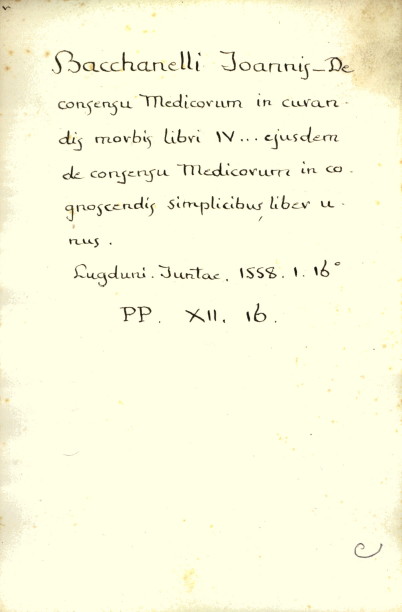 Bacchanelli Joannis_De
consensu Medicorum in curan-
dis morbis libri IV... ejusdem
de consensu Medicorum in co-
gnoscendis simplicibus liber u-
nus.
Lugduni. Juntae. 1558. 1. 16°
PP. XII. 16.